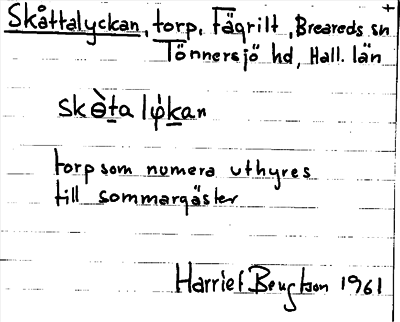 Skåttalyckan, torp, Fägrilt, Breareds sn
Tönnersjö hd, Hall. län
skὲta lykan
torp som numera uthyres
till sommargäster
Harriet Bengtson 1961